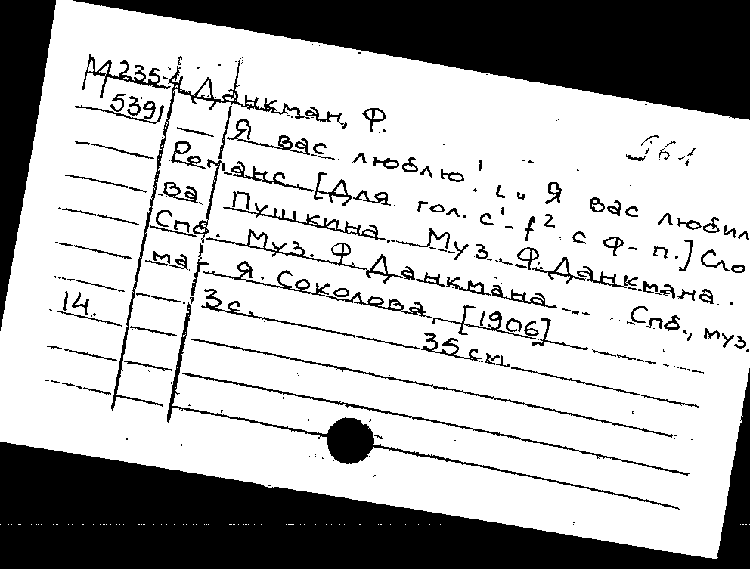 М 235-4 Данкман, Ф.
5391
961
Я вас люблю! "Я вас любил
Романс. [Для гол. с¹-f² с ф-п.] Сло
ва Пушкина. Муз. Ф. Данкмана.
Спб. Муз. Ф. Данкмана... Спб., муз.
маг. Я. Соколова, [1906]
14. 3 с. 35 см.